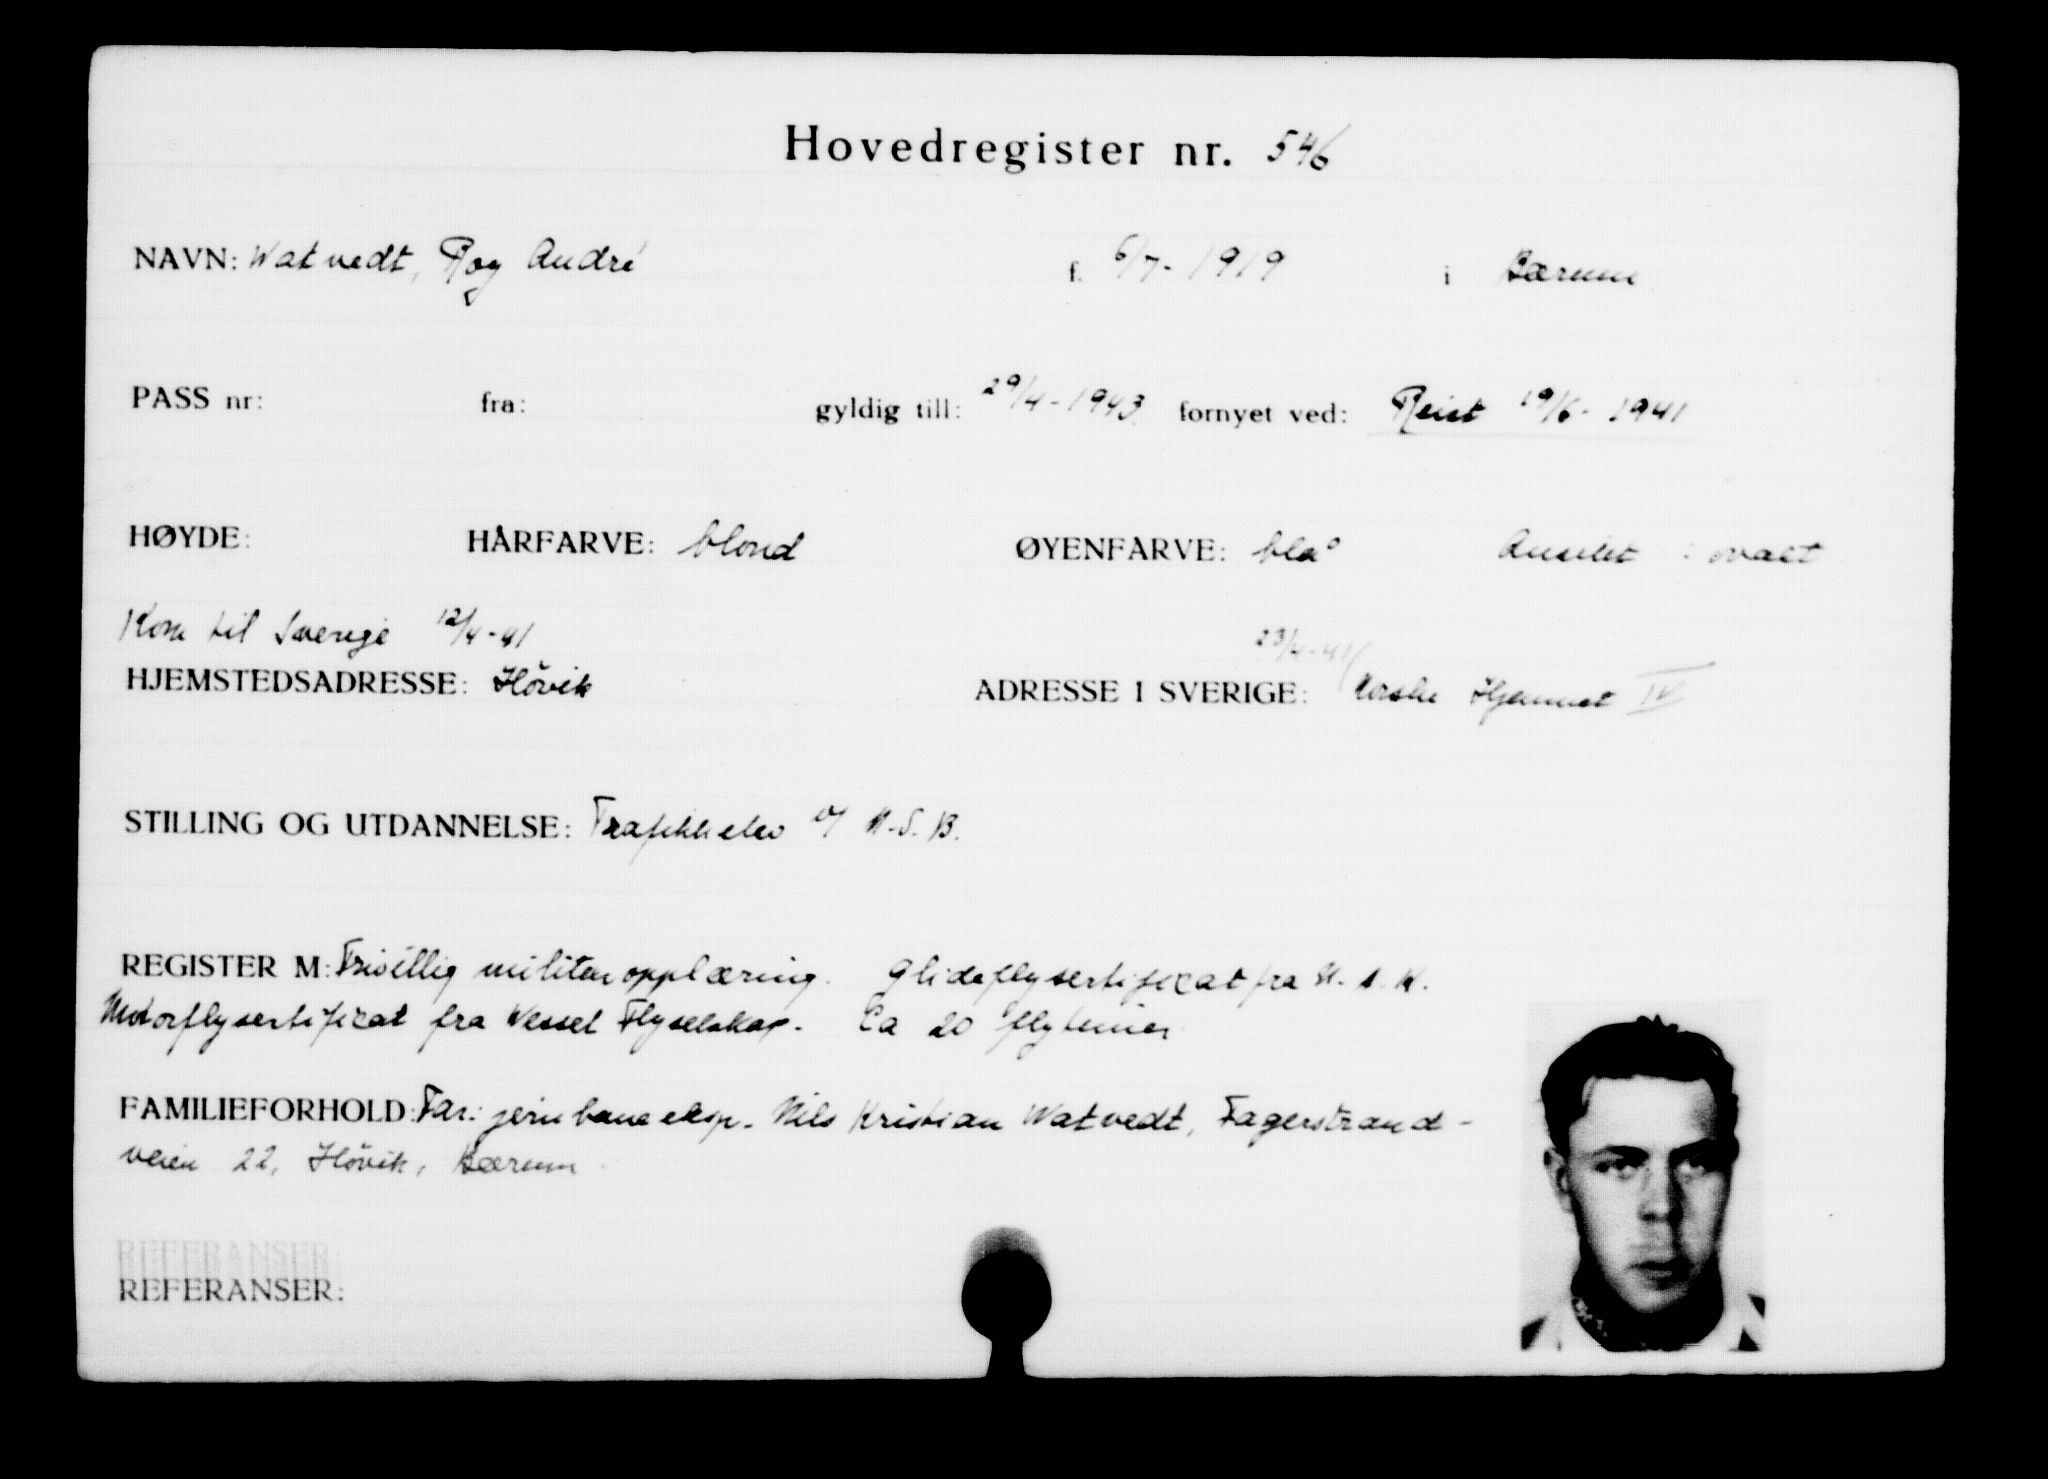 Hovedregister nr. 546
NAVN: Watvedt, Roy André f. 6/7-1919 i Bærum
PASS nr: fra: gyldig till: 29/4-1943 fornyet ved: Reist 19/6-1941
HØYDE: HÅRFARVE: blond ØYENFARVE: blå Ansikt : ovalt
Kom til Sverige 12/4-41 23/4-41
HJEMSTEDSADRESSE: Hövik ADRESSE I SVERIGE: Norske Hjemmet IV
STILLING OG UTDANNELSE: Trafikkelev v/ N.S.B.
REGISTER M: Frivillig militær opplæring. Glideflysertifikat fra N.A.K.
Motorflysertifikat fra Wessel Flyselskap. Ca 20 flytimer
FAMILIEFORHOLD: Far: jernbaneeksp. Nils Kristian Watvedt, Fagerstrand-
veien 22, Hövik, Bærum
REFERANSER:
REFERANSER: